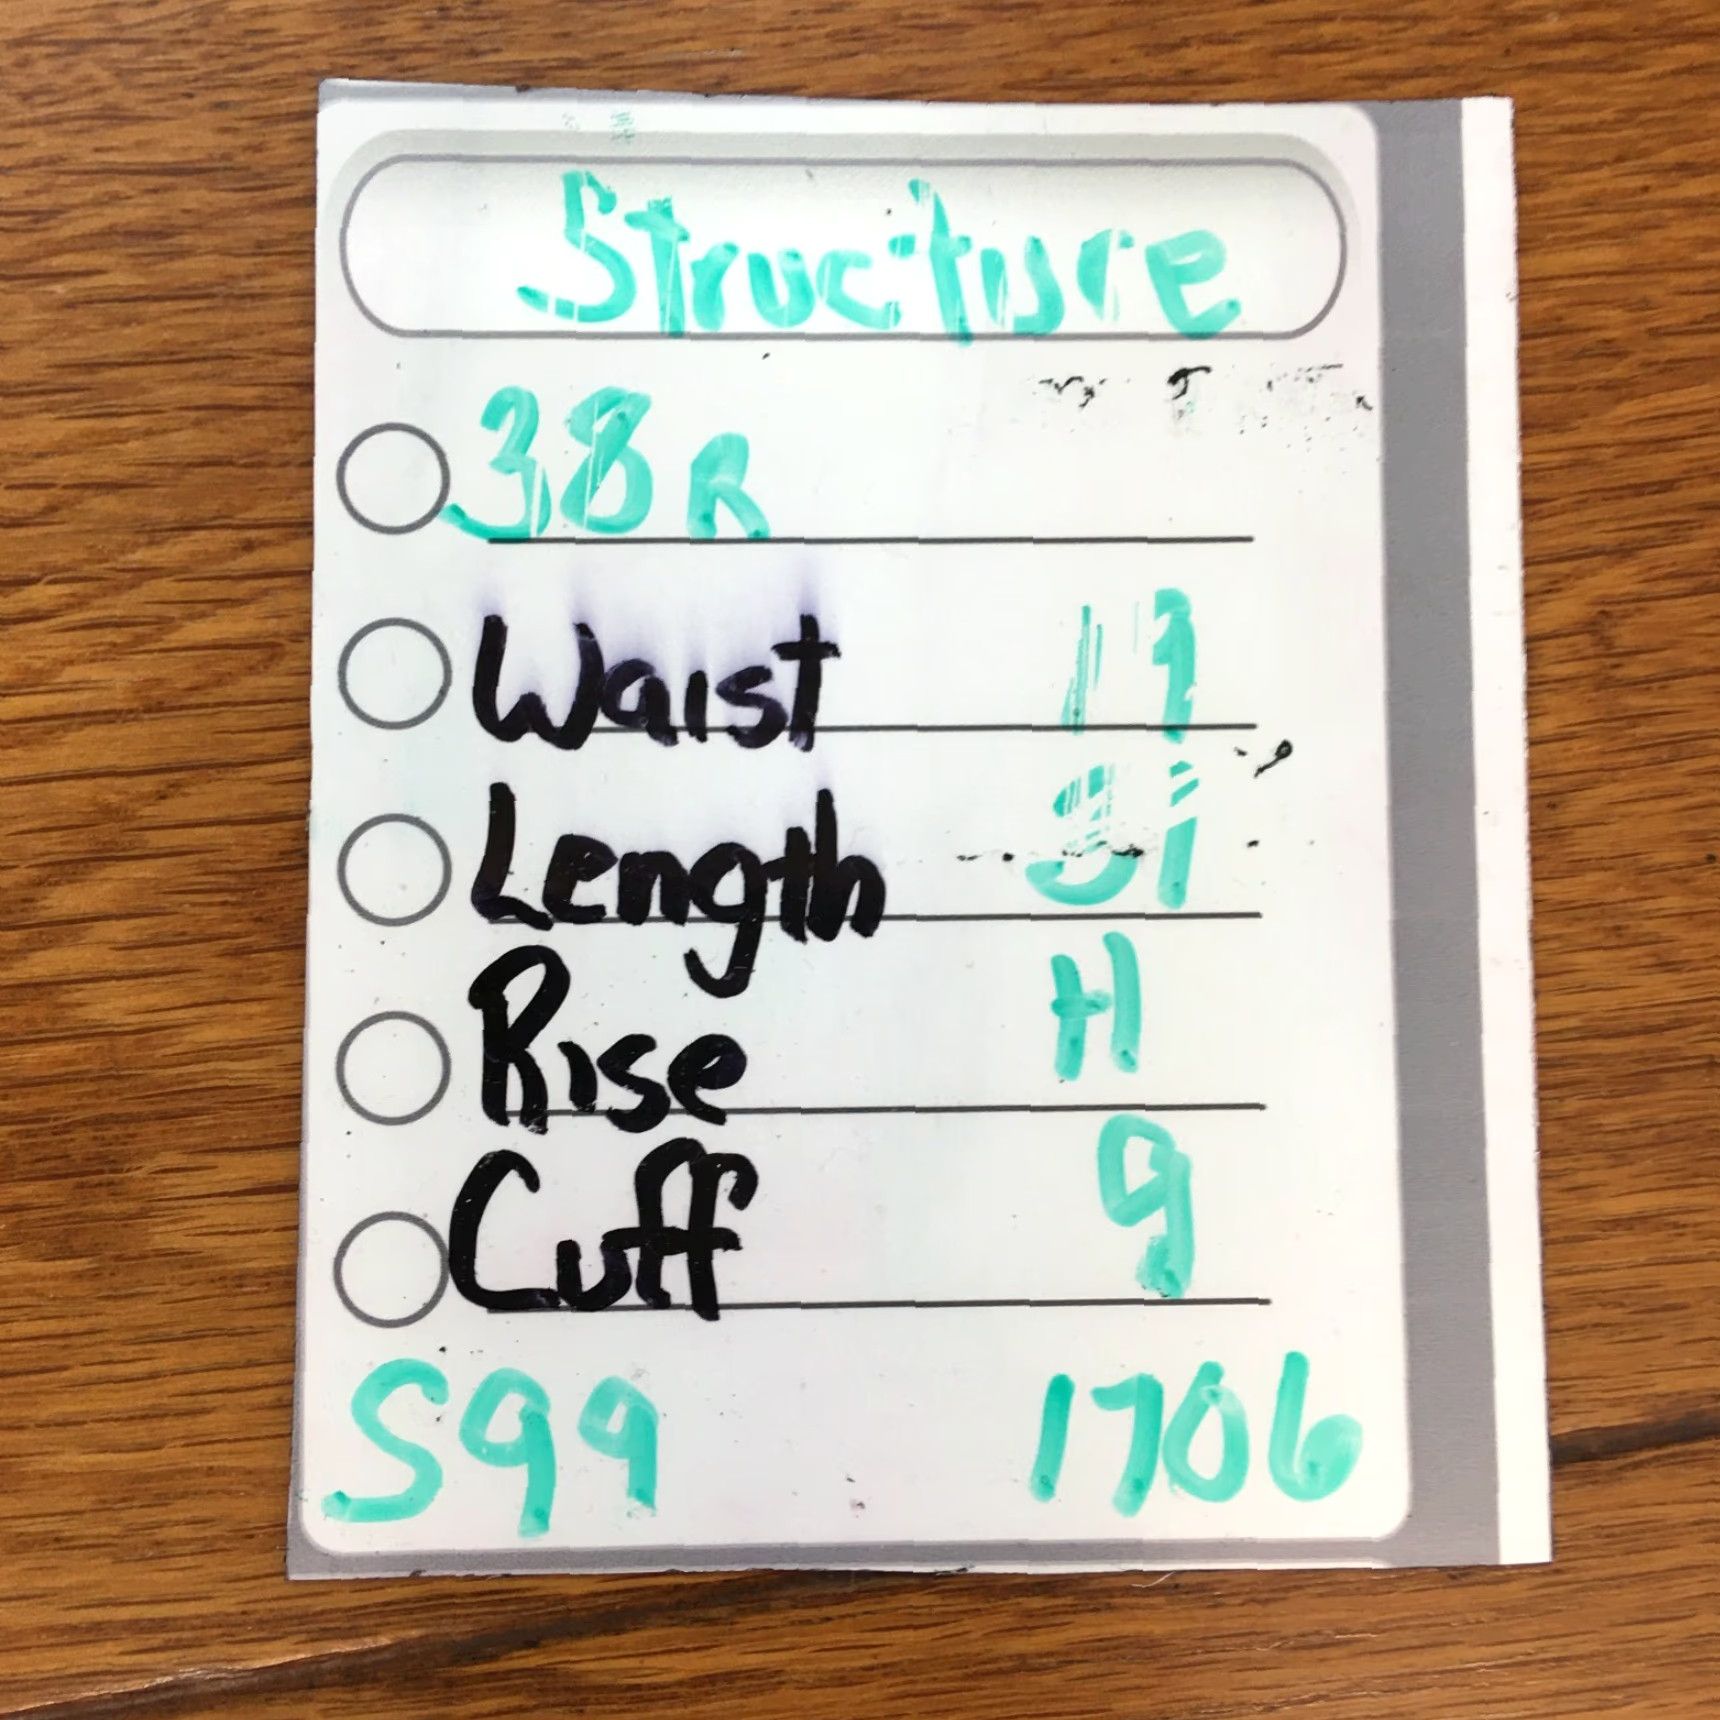 Structure
38R
Waist
Length
Rise
Cuff 9
S99 1706